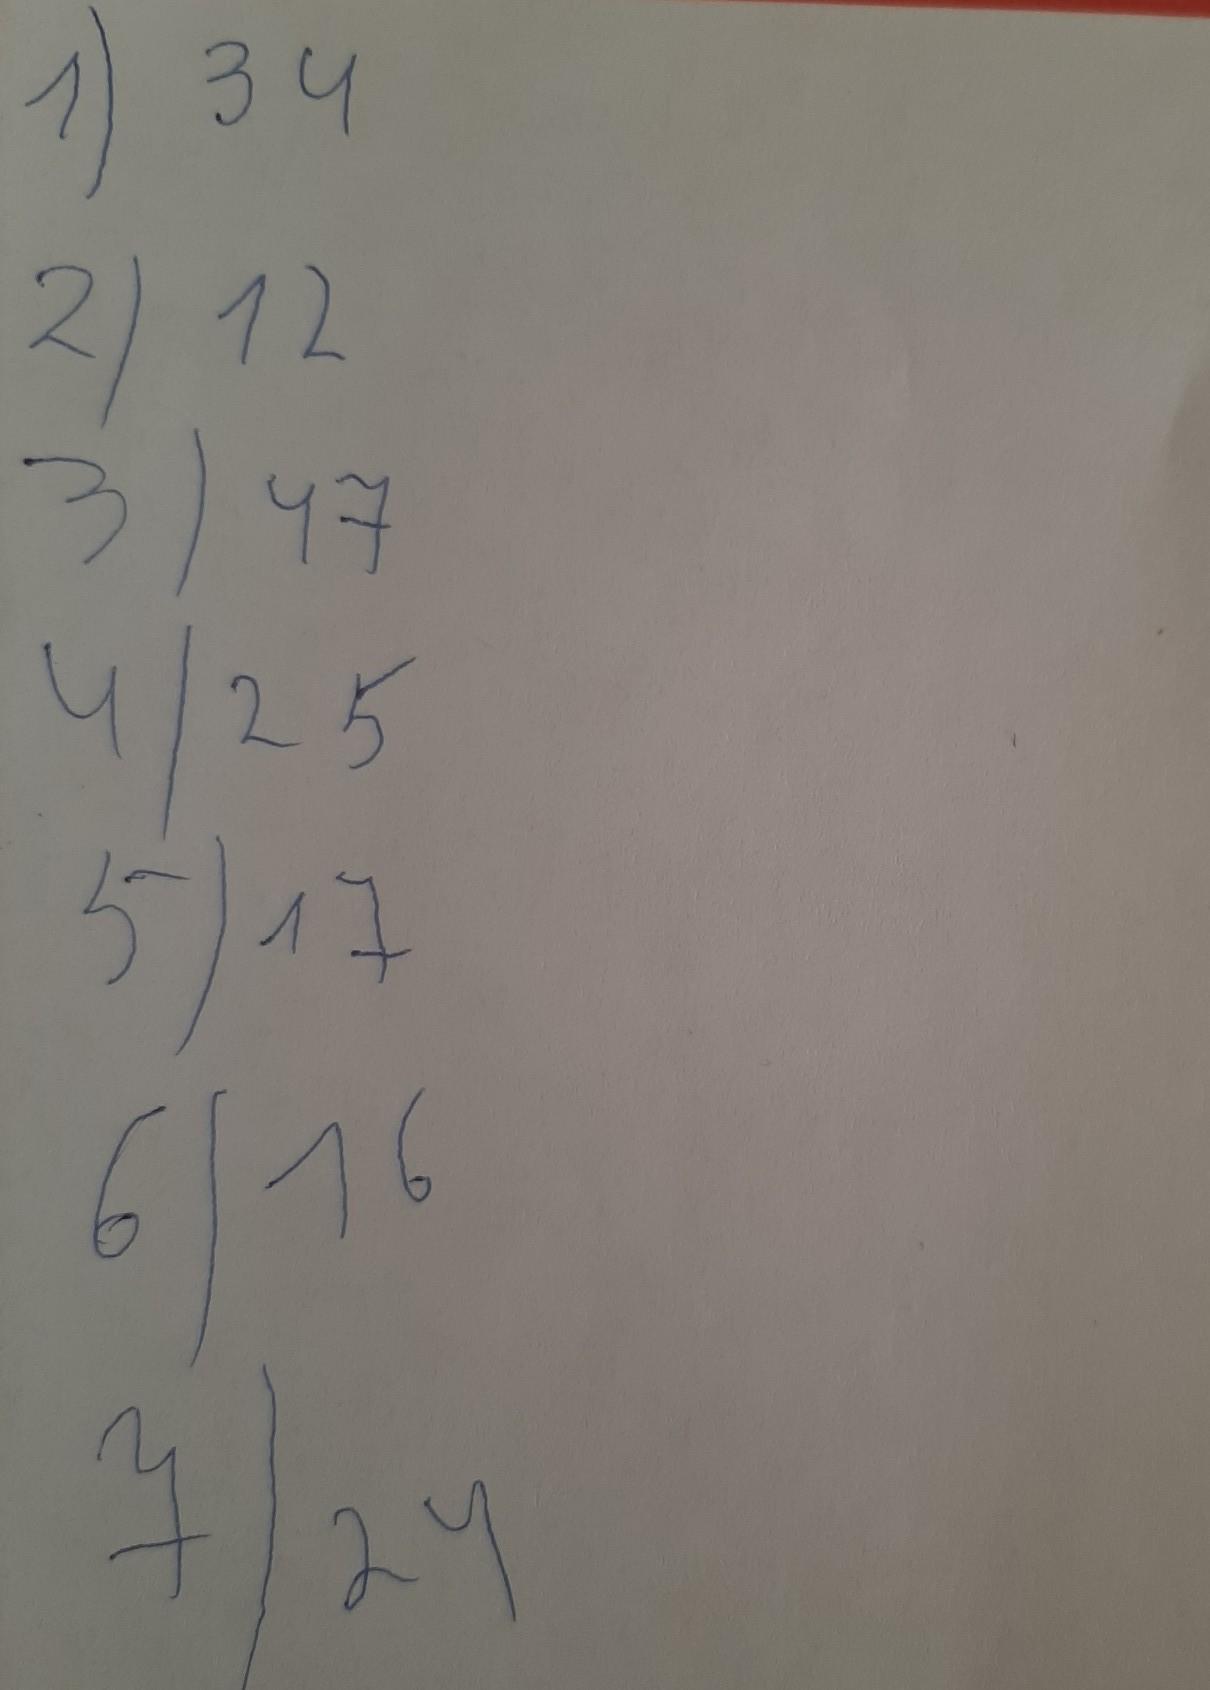 1) 34
2) 12
3) 47
4) 25
5) 17
6) 16
7) 24